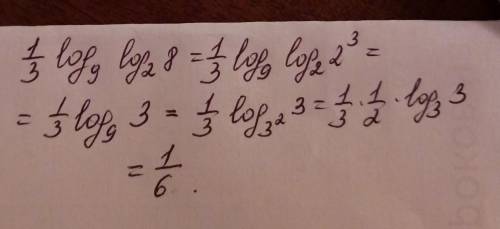 1/3 log₉ log₂ 8 = 1/3 log₉ log₂ 2³ =
= 1/3 log₉ 3 = 1/3 log₃² 3 = 1/3 · 1/2 · log₃ 3
= 1/6 .